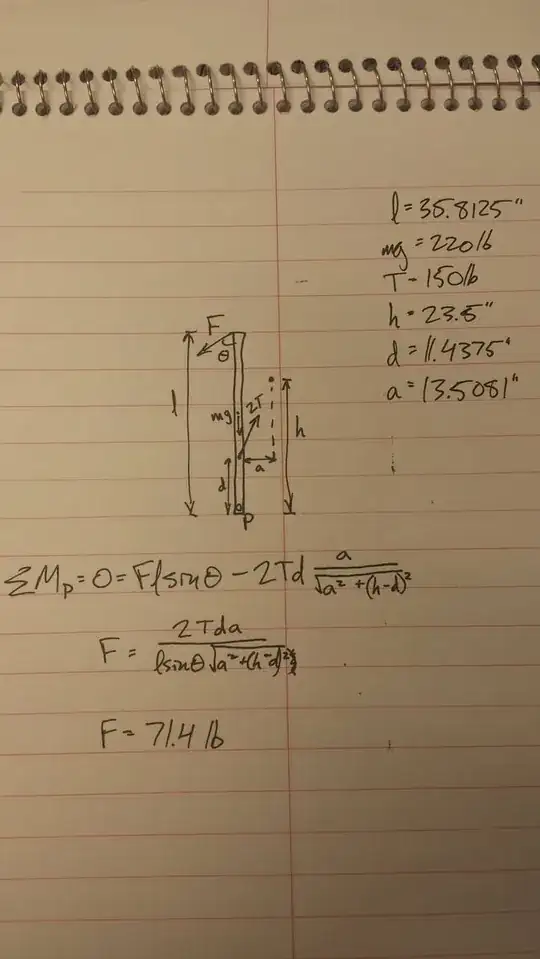 l = 35.8125"
mg = 220 lb
T = 150 lb
h = 23.5"
d = 11.4375"
a = 13.5081"
F
θ
l
mg
2T
h
a
d
P
ΣM_P = 0 = Flsinθ - 2Td a/√(a² + (h-d)²)
F = 2Tda/(lsinθ √(a² + (h-d)²))
F = 71.4 lb